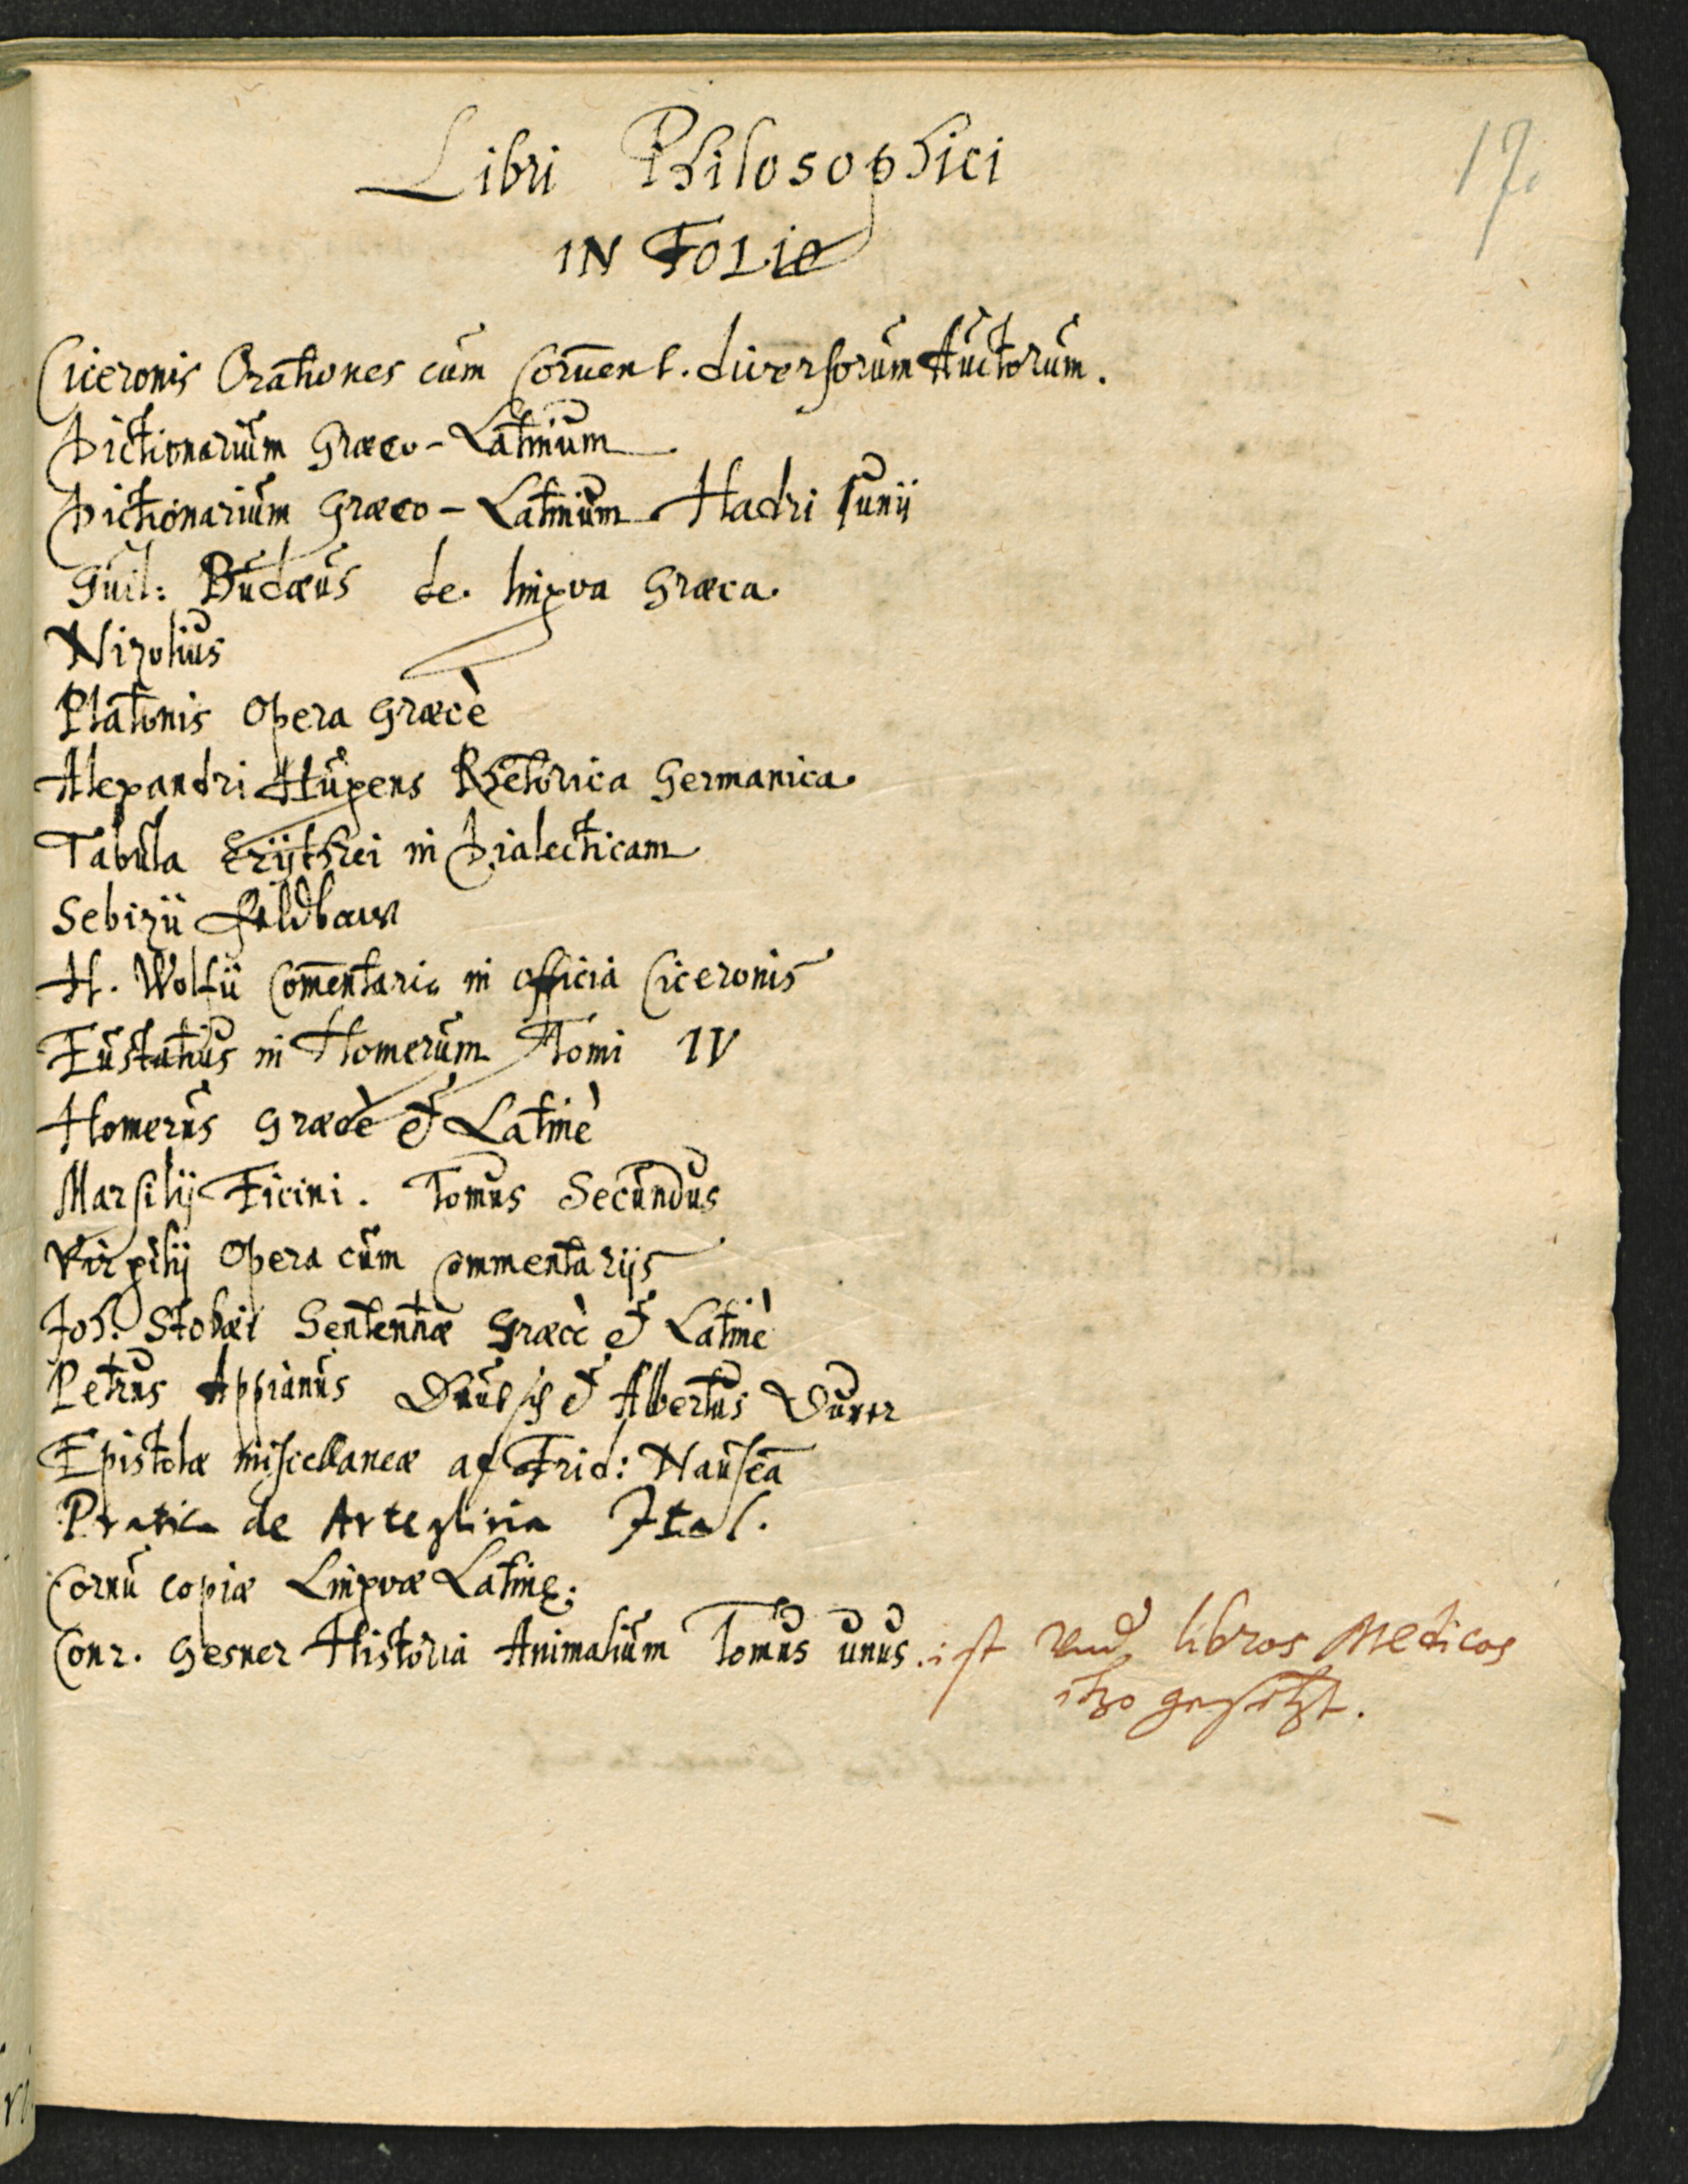 17.
Libri Philosophici
IN Folio
Ciceronis Orationes cum Coment. diversorum Auctorum.
Dictionarium Græco-Latinum
Dictionarium Græco-Latinum Hadri Junij
Guil: Budæus de lingva Græca.
Nizolius
Platonis Opera Græcè
Alexandri Hugens Rhetorica Germanica.
Tabula Erijthrei in Dialecticam
Sebizii Feldbaw
H. Wolfii Com̄entaria in officia Ciceronis
Eustatius in Homerum Tomi IV
Homerus Græcè et Latinè
Marsilij Ficini. Tomus Secundus
Virgilij Opera cum commentarijs
Joh. Stobæi Sententiæ Græcè et Latinè
Petrus Appianus Deutsch et Albertus Durer
Epistolæ miscellaneæ ad Frid: Nauseā
Pratica de Arteglieria Ital.
Cornu copiæ Lingvæ Latinę.
Conr. Gesner Historia Animalium Tomus unus. ist libros Medicos
itzo gesetzt.